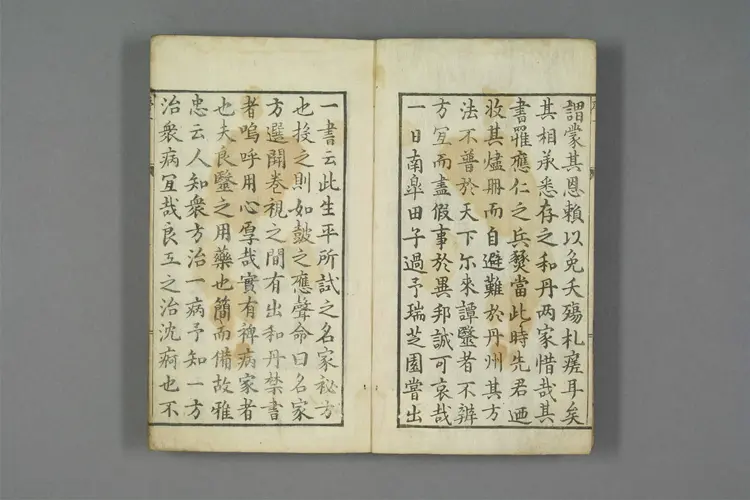 謂蒙其恩賴以免夭殤札瘥耳矣
其相承悉存之和丹两家惜哉其
書罹應仁之兵燹當此時先君廼
收其燼册而自避難於丹州其方
法不普於天下尓來譚醫者不辨
方冝而盡假事於異邦誠可哀哉
一日南皐田子過予瑞芝園嘗出
一書云此生平所試之名家秘方
也投之則如皷之應聲命曰名家
方選開卷視之間有出和丹禁書
者嗚呼用心厚哉實有裨病家者
也夫良醫之用藥也簡而備故雅
忠云人知衆方治一病予知一方
治衆病冝哉良工之治沈痾也不